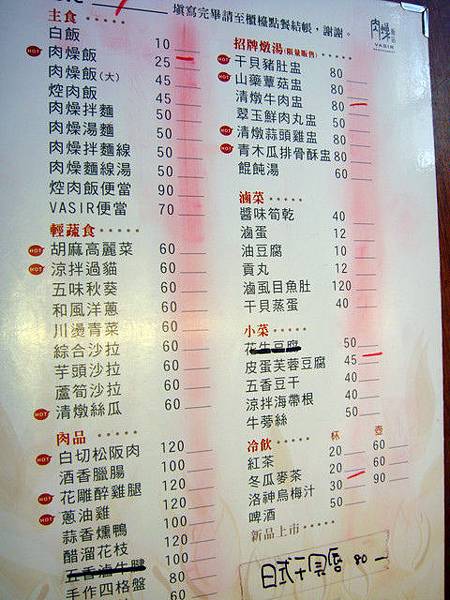 填寫完畢請至櫃檯點餐結帳，謝謝。
肉燥
VASIR
主食
白飯 10
HOT 肉燥飯 25
肉燥飯(大) 45
焢肉飯 45
肉燥拌麵 50
肉燥湯麵 50
肉燥拌麵線 50
肉燥麵線湯 50
焢肉飯便當 90
VASIR便當 70
輕蔬食
HOT 胡麻高麗菜 60
HOT 涼拌過貓 60
五味秋葵 60
和風洋蔥 60
川燙青菜 60
綜合沙拉 60
芋頭沙拉 60
蘆筍沙拉 60
HOT 清燉絲瓜 60
肉品
HOT 白切松阪肉 120
酒香臘腸 100
HOT 花雕醉雞腿 120
HOT 蔥油雞 100
蒜香燻鴨 100
醋溜花枝 120
五香滷牛腱 100
手作四格盤 80
招牌燉湯(限量販售)
HOT 干貝豬肚盅 80
HOT 山藥蕈菇盅 80
清燉牛肉盅 80
翠玉鮮肉丸盅 50
HOT 清燉蒜頭雞盅 80
HOT 青木瓜排骨酥盅 80
餛飩湯 60
滷菜
醬味筍乾 40
滷蛋 12
油豆腐 10
貢丸 12
滷虱目魚肚 120
干貝蒸蛋 40
小菜
花生豆腐 50
皮蛋芙蓉豆腐 45
五香豆干 40
涼拌海帶根 40
牛蒡絲 50
冷飲 杯 壺
紅茶 20 60
冬瓜麥茶 20 60
洛神烏梅汁 30 90
啤酒 50
新品上市
日式干貝唇 80